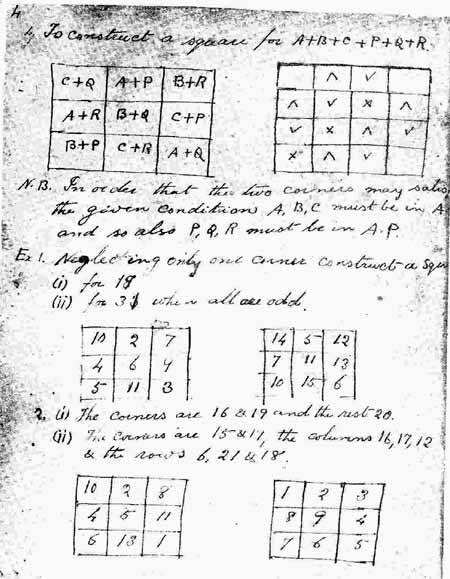 4
4, To construct a square for A+B+C+P+Q+R.
C+Q A+P B+R
A+R B+Q C+P
B+P C+R A+Q
∧ ∨
∧ ∨ × ∧
∨ × ∧ ∨
× ∧ ∨
N.B. In order that the two corners may satis
the given condition A, B, C must be in A
and so also P, Q, R must be in A.P.
Ex 1. Neglecting only one corner construct a squ
(i) for 19
(ii) for 31 when all are odd.
10 2 7
4 6 9
5 11 3
14 5 12
7 11 13
10 15 6
2. (i) The corners are 16 & 19 and the rest 20.
(ii) The corners are 15 & 11, the columns 16, 17, 12
& the rows 6, 21 & 18.
10 2 8
4 5 11
6 13 1
1 2 3
8 9 4
7 6 5